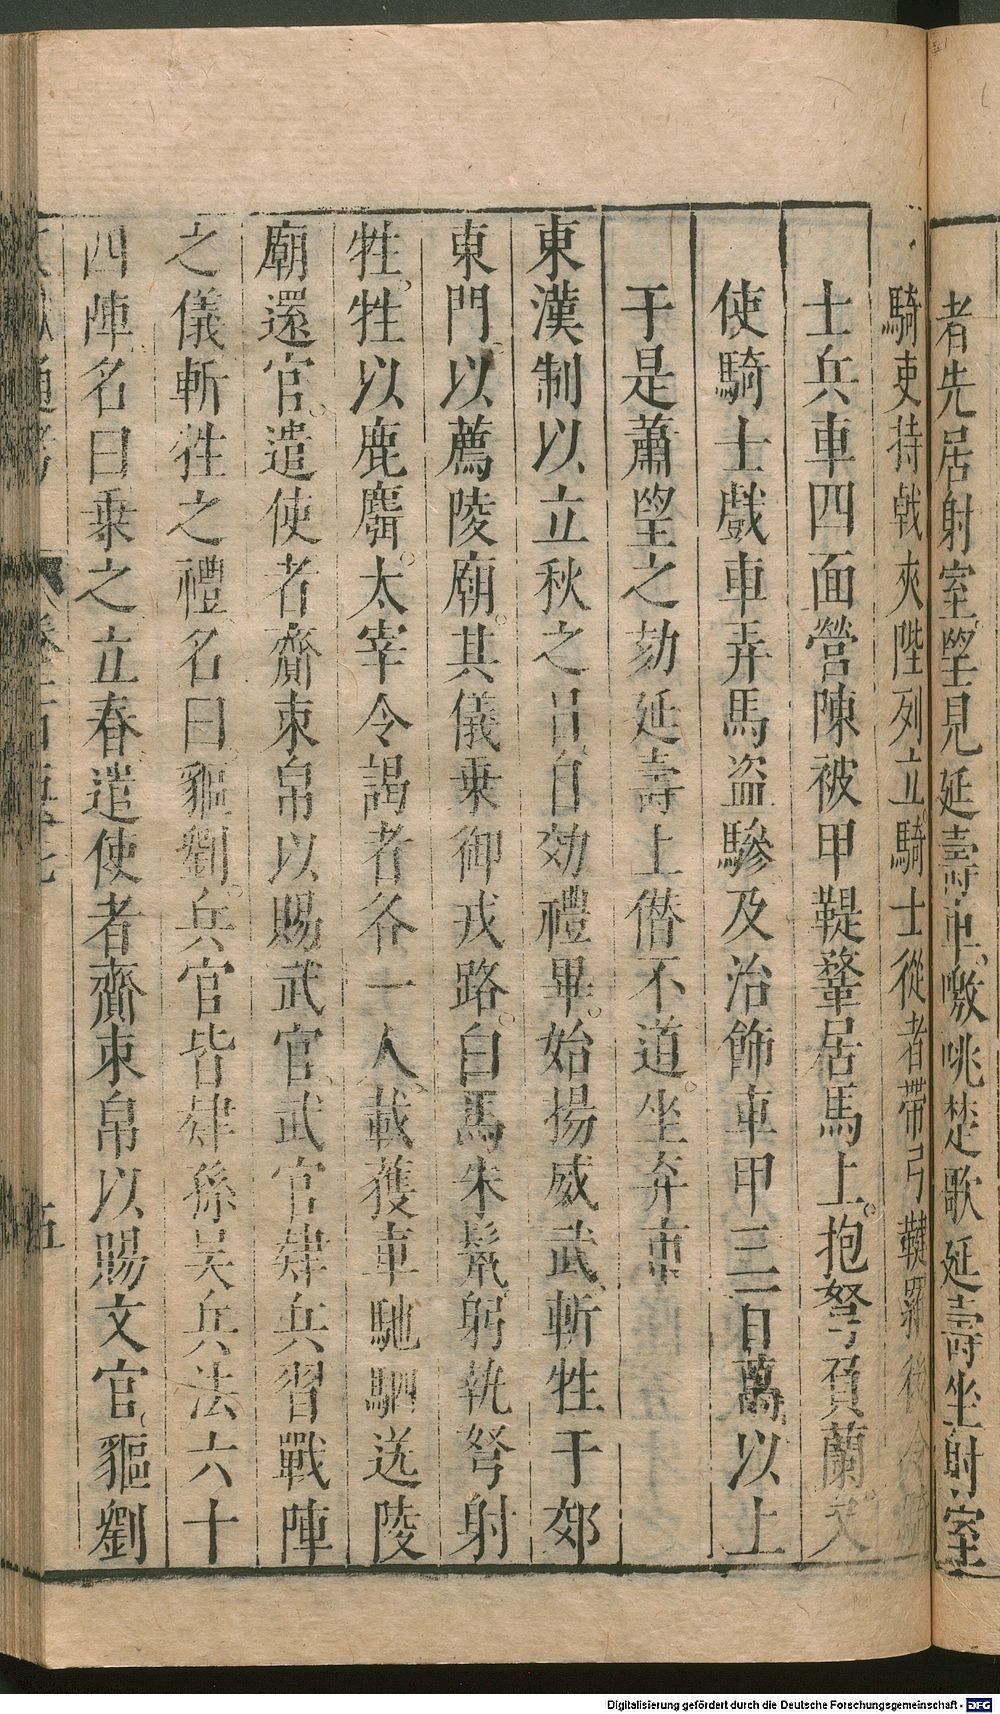 者先居射室望見延壽車噭咷楚歌延壽坐射室
騎吏持戟夾陛列立騎士從者帶弓鞬羅後令騎
士兵車四面營陳被甲鞮鞪居馬上。抱弩負蘭。又
使騎士戲車弄馬盜驂。及治飾車甲三百萬以上
于是蕭望之劾延壽上僣不道。坐弃市
東漢制以立秋之日自郊禮畢。始揚威武。斬牲于郊
東門。以薦陵廟。其儀乗御戎路。白馬朱鬣。躬執弩射
牲。牲以鹿麛。太宰令謁者各一人。載獲車馳駟送陵
廟還官。遣使者齎束帛以賜武官。武官肄兵習戰陣
之儀斬牲之禮。名曰貙劉。兵官皆肄孫吳兵法六十
四陣名曰乗之立春遣使者齎束帛以賜文官。貙劉
通考
五
Digitalisierung gefördert durch die Deutsche Forschungsgemeinschaft - DFG